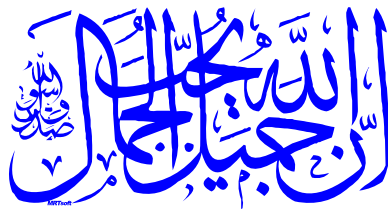 ان الله جميل يحب الجمال
صدق رسول الله
MRTsoft